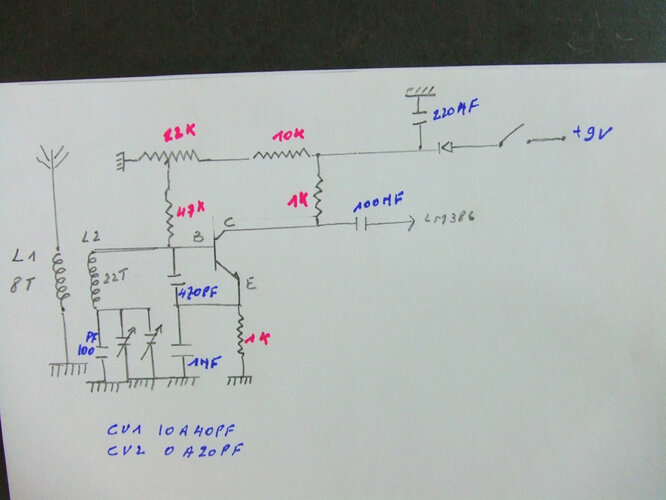 220MF
22K
10K
+9V
47K
1K
100MF
LM386
C
B
L2
L1
8T
22T
E
470PF
PF
100
1K
1MF
CV1 10A40PF
CV2 0 A20PF